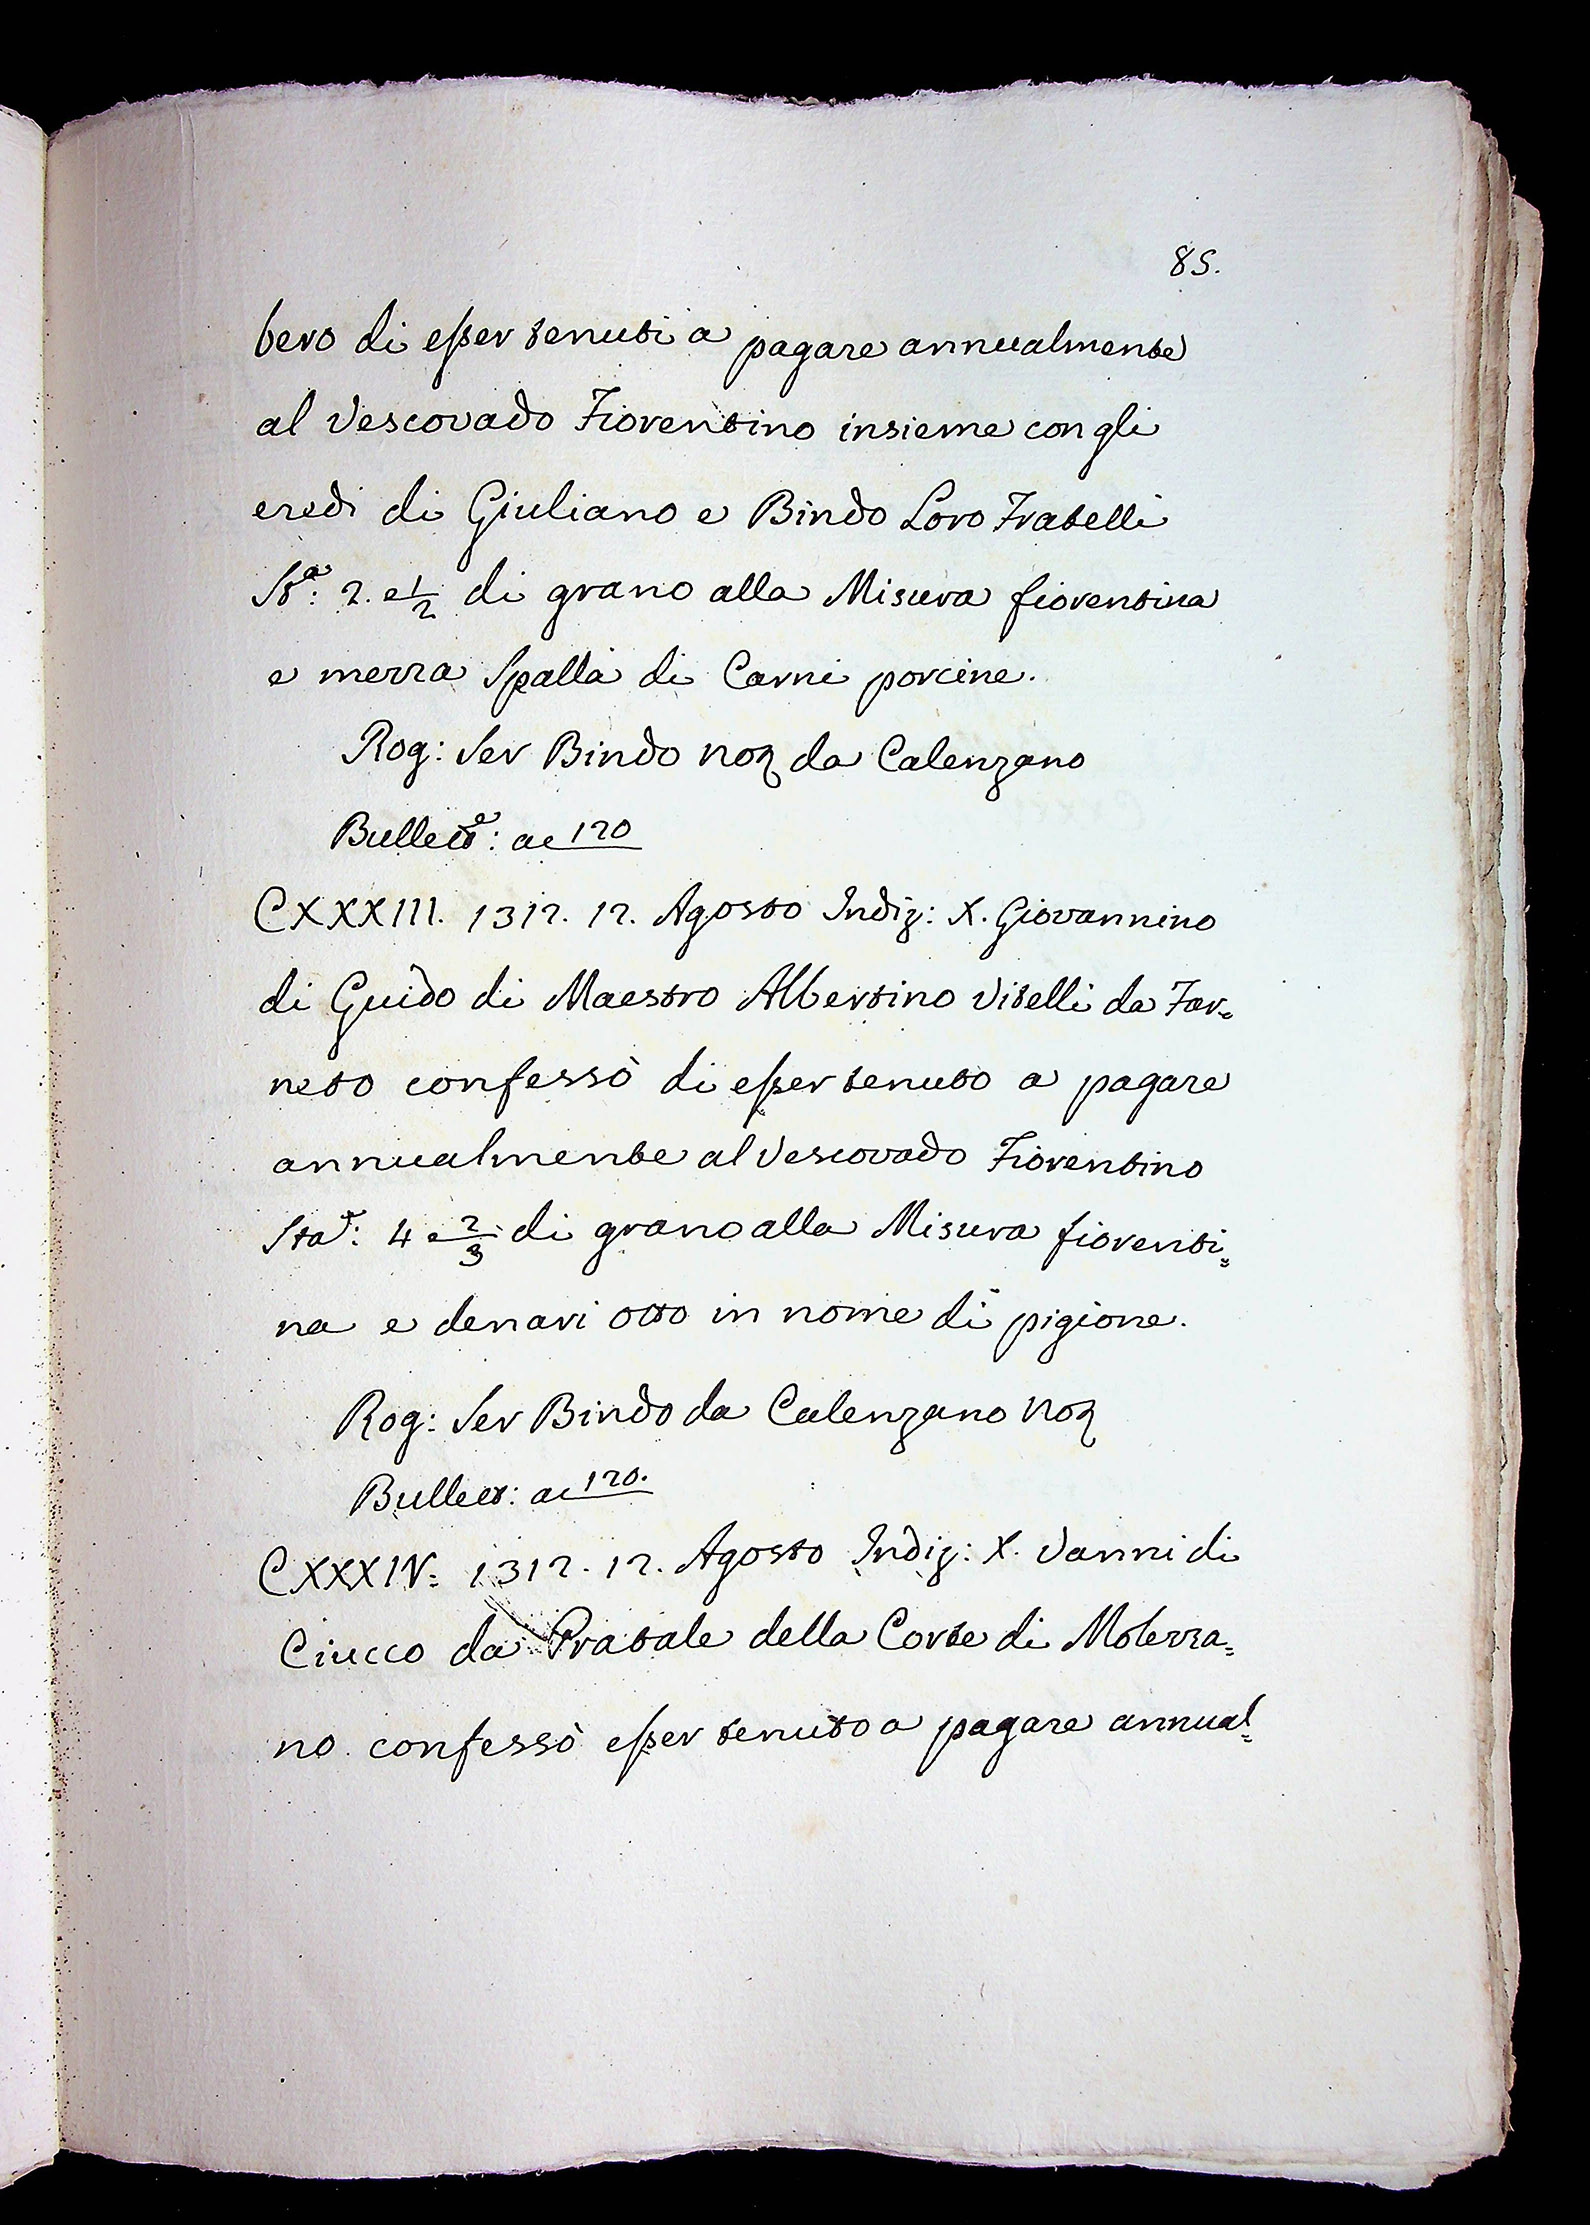 85.
bero di esser tenuti a pagare annualmente
al Vescovado Fiorentino insieme con gli
eredi di Giuliano e Bindo Loro Fratelli
Sta: 2. e 1/2 di grano alla Misura fiorentina
e mezza Spalla di Carni porcine.
Rog: Ser Bindo Noz da Calenzano
Bullett: ac 120
CXXXIII. 1312. 12. Agosto Indiz: X. Giovannino
di Guido di Maestro Albertino Vitelli da Far=
neto confessò di esser tenuto a pagare
annualmente al Vescovado Fiorentino
Sta: 4 e 2/3 di grano alla Misura fiorenti=
na e denari otto in nome di pigione.
Rog: Ser Bindo da Calenzano Noz
Bullett: ac 120.
CXXXIV. 1312. 12. Agosto Indiz: X. Vanni di
Ciucco da Pratale della Corte di Molezza=
no confessò esser tenuto a pagare annual=